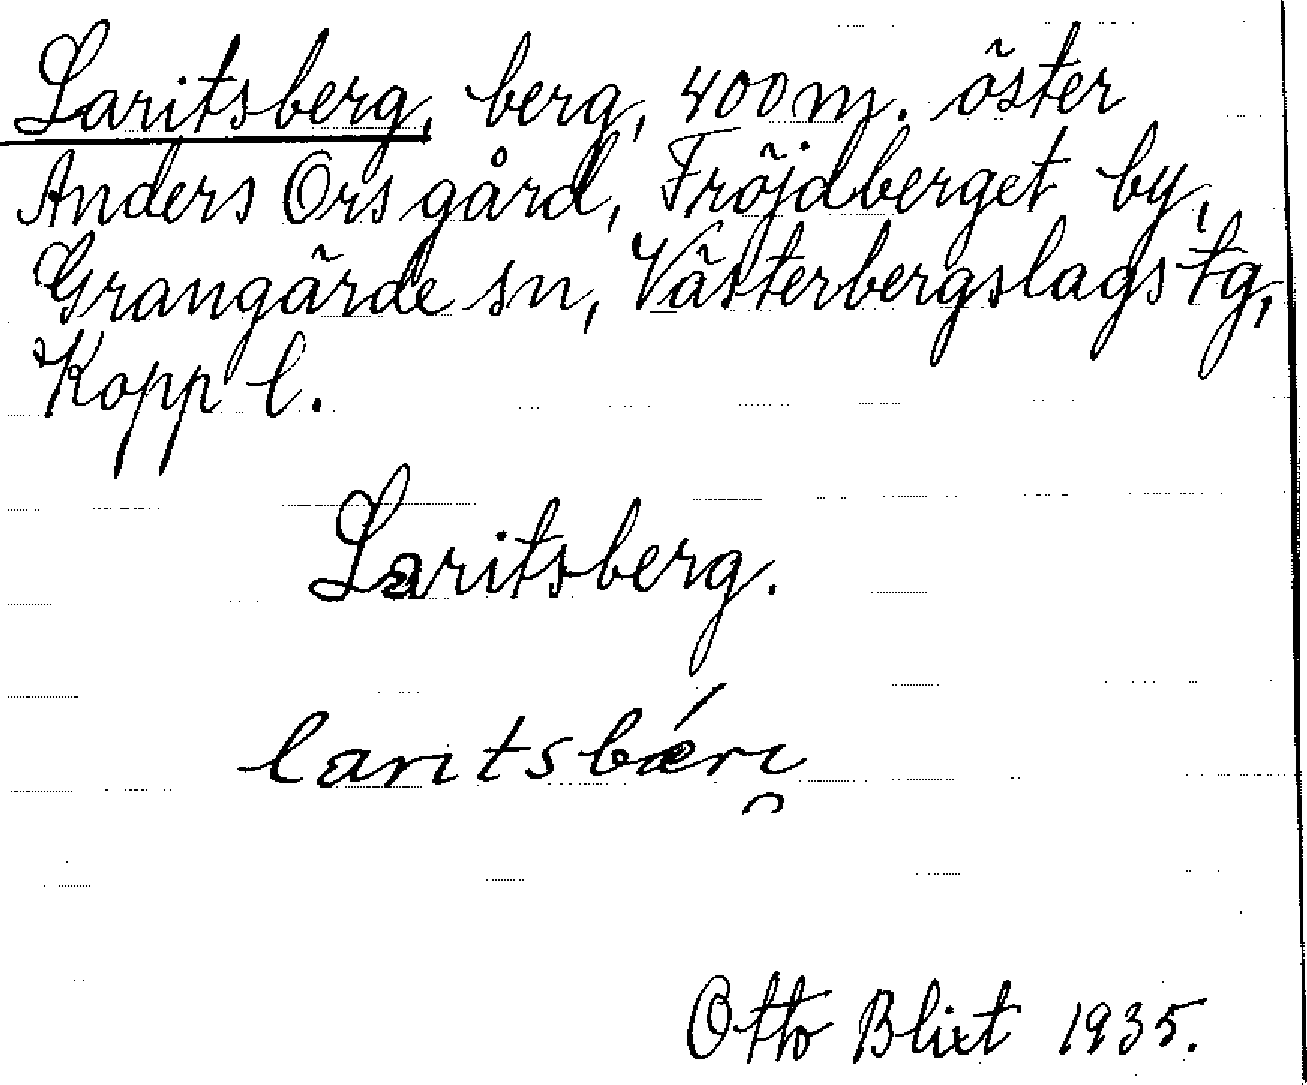 Laritsberg, berg, 400 m. öster
Anders Ors gård, Fröjdberget by,
Grangärde sn, Västerbergslags tg,
Kopp l.
Laritsberg.
laritsbǽri̯
Otto Blixt 1935.